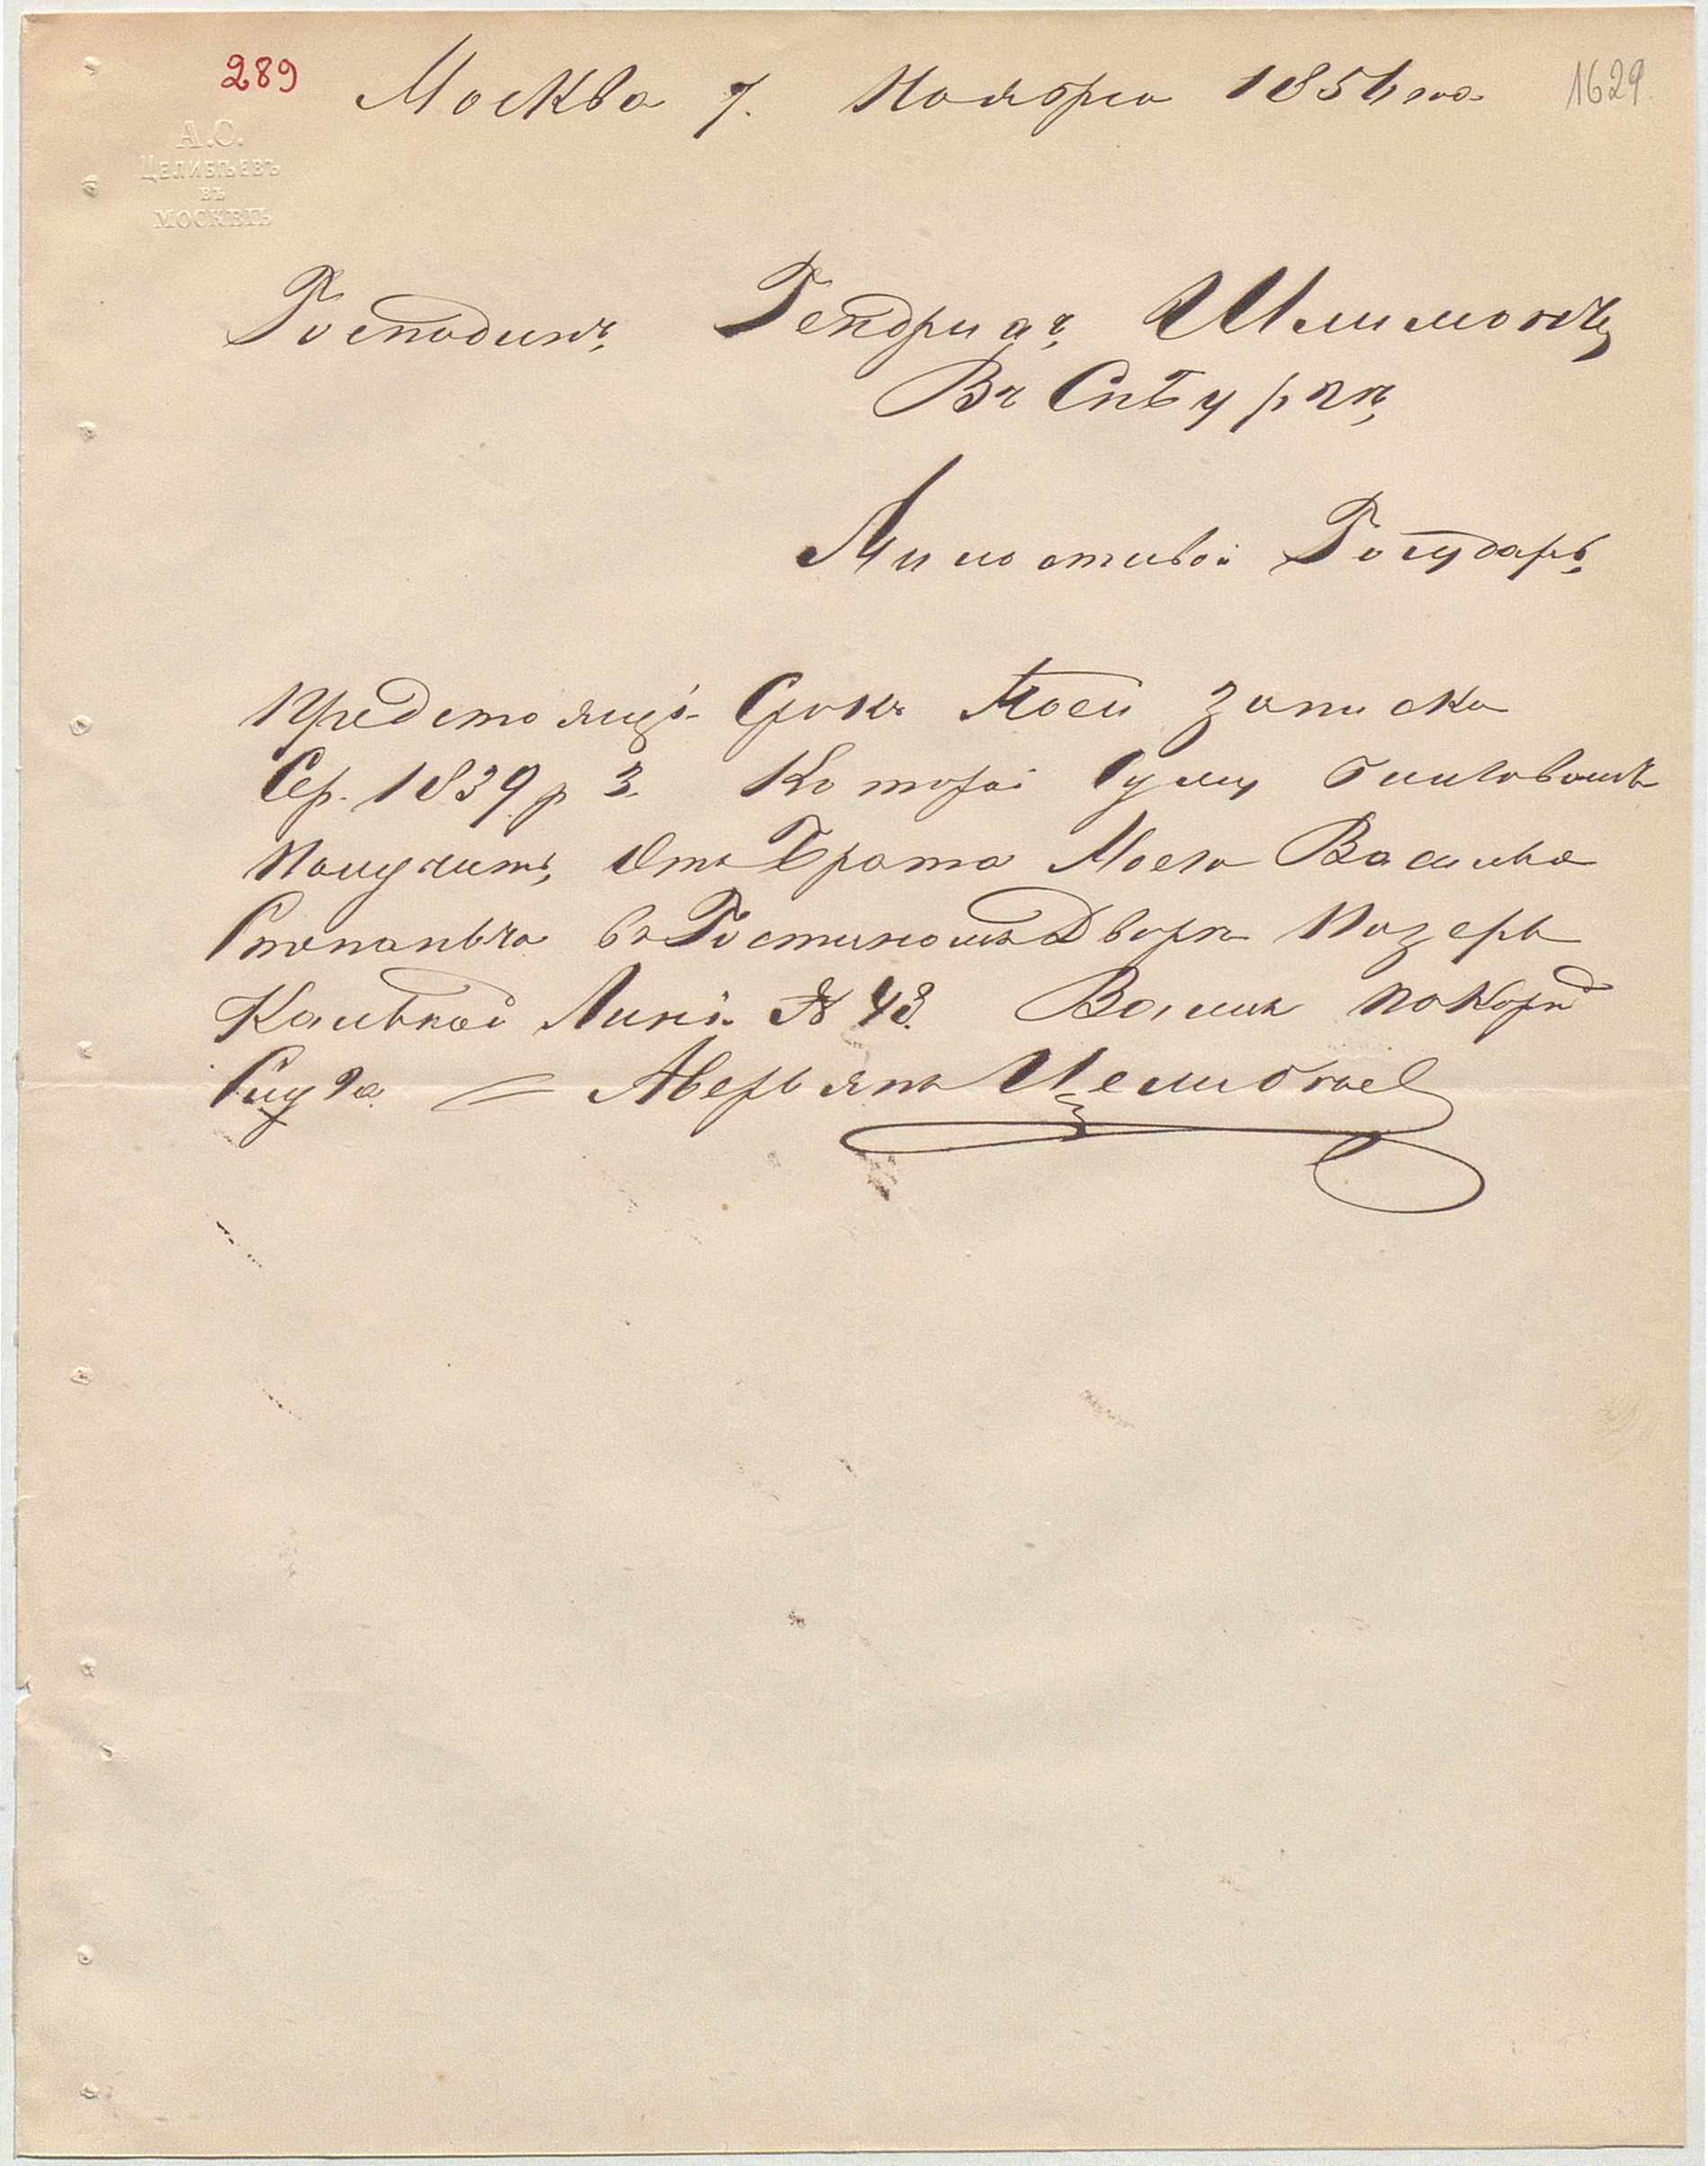 289 Москва 7. Ноября 1856 го. 1629.
А.С.
ЦЕЛИБѢЕВЪ
ВЪ
МОСКВѢ
Господинъ, Гендрихъ, Шлиманъ,
Въ СпБургъ,
Милостивой Государь,
Предстоящі Срокъ Моей записка
Сер. 1839 р 3. Которой Суму
Получить, Отъ Брата Моего Василья
Степаныча въ Гостиномъ Дворѣ Позерь
Кальной Лині № 43. Вамъ покорн
Слуга = Аверьянъ Целибѣев